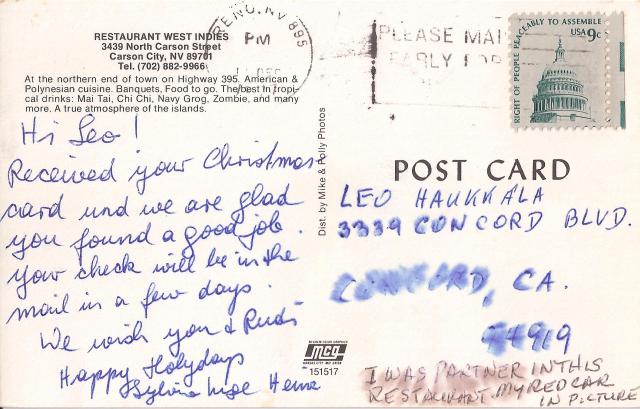 RESTAURANT WEST INDIES
3439 North Carson Street
Carson City, NV 89701
Tel. (702) 882-9966
At the northern end of town on Highway 395. American &
Polynesian cuisine. Banquets, Food to go. The best in tropi-
cal drinks: Mai Tai, Chi Chi, Navy Grog, Zombie, and many
more. A true atmosphere of the islands.
RENO, NV 895
PM
DEC
PLEASE MAI
EARLY FOR
RIGHT OF PEOPLE PEACEABLY TO ASSEMBLE
USA 9c
Hi Leo!
Received your Christmas
card und we are glad
you found a good job.
Your check will be in the
mail in a few days.
We wish you & Rudi
Happy Holydays
Sylvia Inge Heinz
Dist. by Mike & Polly Photos
POST CARD
LEO HAUKKALA
3339 CONCORD BLVD.
CONCORD, CA.
94919
mcg
151517
I WAS PARTNER IN THIS
RESTAURANT. MY RED CAR
IN PICTURE